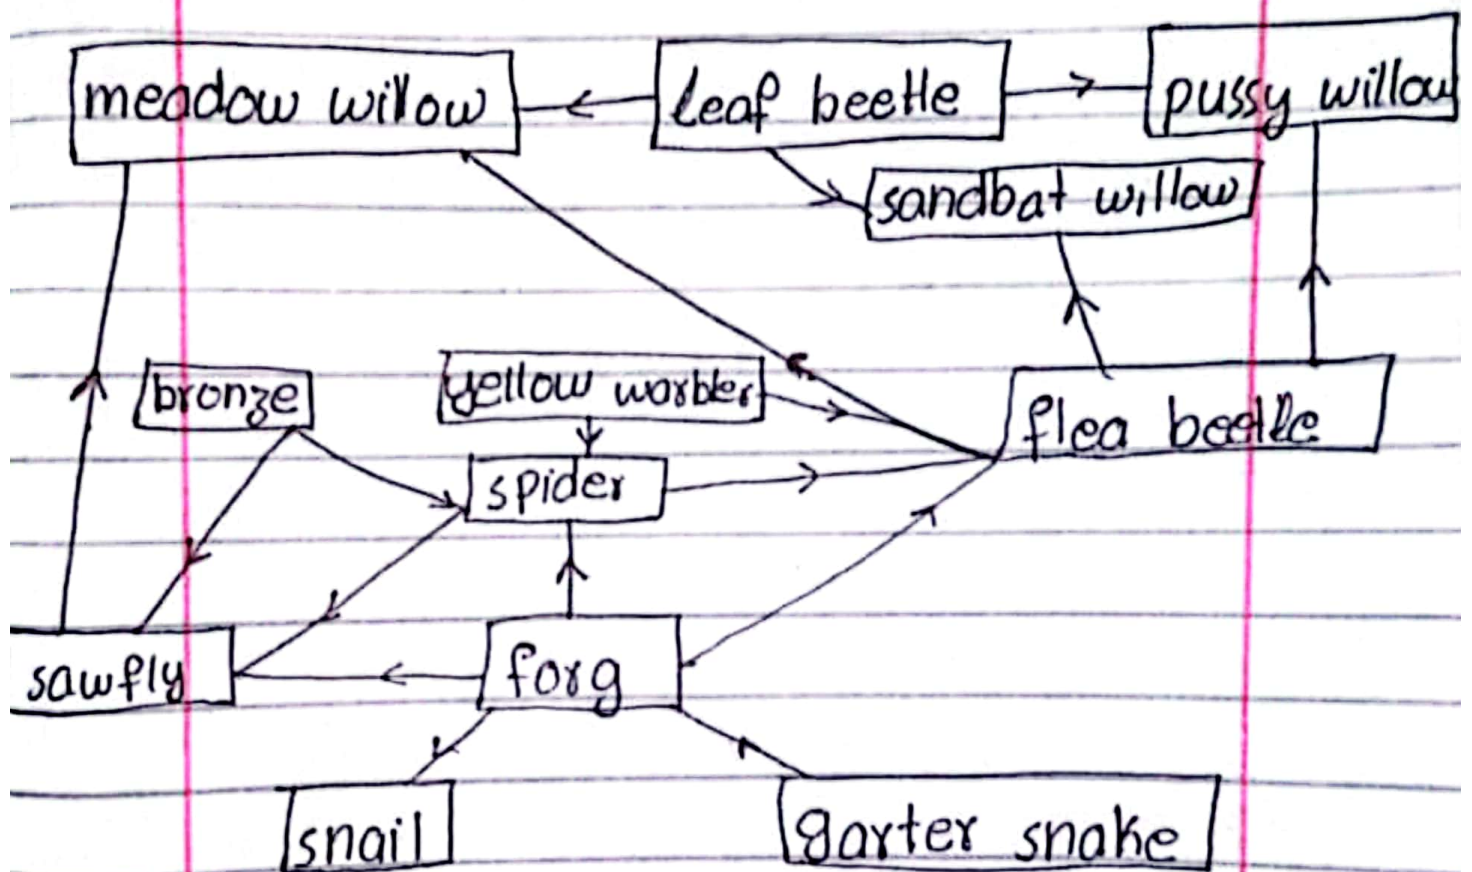 meadow willow
leaf beetle
pussy willow
sandbat willow
bronze
yellow warbler
flea beetle
spider
sawfly
forg
snail
garter snake